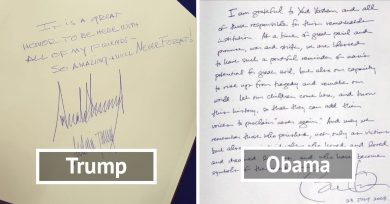 IT IS A GREAT
HONOR TO BE HERE WITH
ALL OF MY FRIENDS -
SO AMAZING + WILL NEVER FORGET!
Trump
I am grateful to Yad Vashem, and all
of those responsible for this remarkable
institution. At a time of great peril and
promise, war and strife, we are blessed
to have such a powerful reminder of man's
potential for great evil, but also our capacity
to rise up from tragedy and remake our
world. Let our children come here, and know
this history, so that they can add their
voices to proclaim "never again." And may we
remember those who perished, not only as victims
but also as individuals who loved and
and dreamed like us, and who have become
symbols of the
Obama
23 July 2008